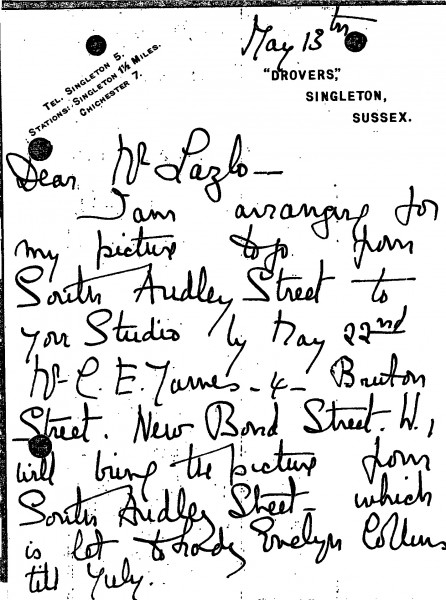 May 13th
TEL. SINGLETON 5.
STATIONS: SINGLETON 1½ MILES.
CHICHESTER 7.
"DROVERS,"
SINGLETON,
SUSSEX.
Dear Mr Lazlo—
I am arranging for
my picture to go from
South Audley Street to
your Studio by May 22nd
Mr C. E. - 4 - Bruton
Street. New Bond Street. W,
will bring the picture from
South Audley Street - which
is let to Lady Evelyn Collins
till July.